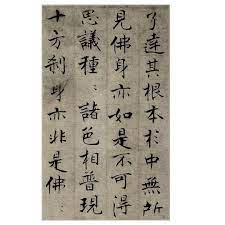 了達其根本於中無所
見佛身亦如是不可得
思議種〻諸色相普現
十方刹身亦非是佛〻